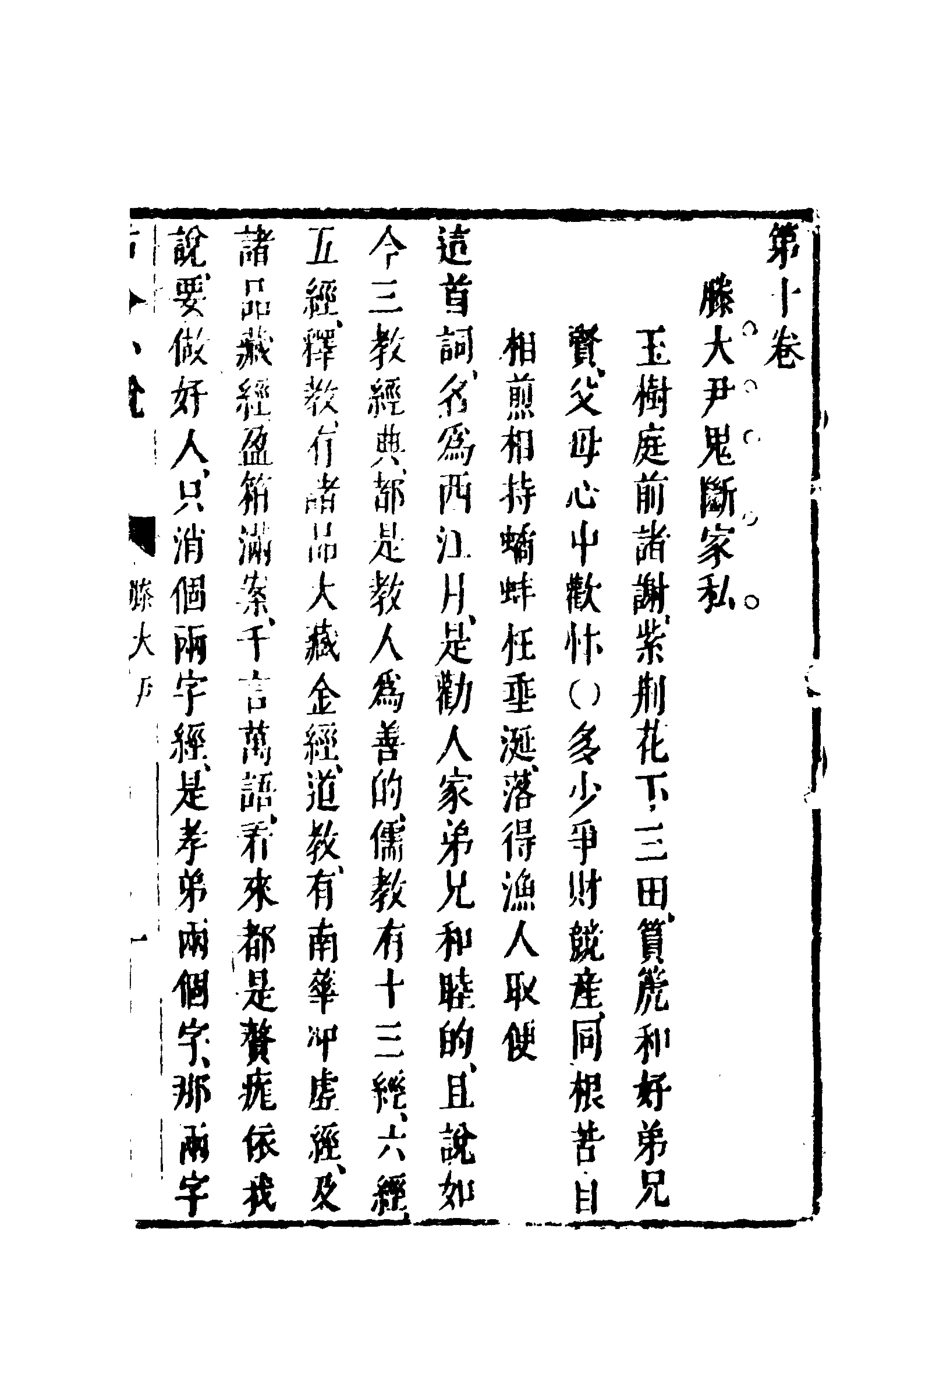 第十卷
滕大尹鬼斷家私
玉樹庭前諸謝、紫荆花下三田、篔箎和好弟兄
賢、父母心中歡忭〇多少爭財競產、同根苦自
相煎相持鷸蚌枉垂涎、落得漁人取便
這首詞、名爲西江月、是勸人家弟兄和睦的、且說如
今三教經典、都是教人爲善的、儒教有十三經、六經、
五經、釋教、有諸品大藏金經、道教、有南華冲虛經、及
諸品藏經、盈箱滿案、千言萬語、看來都是贅疣依我
說、要做好人、只消個兩字經、是孝弟兩個字、那兩字
滕大尹